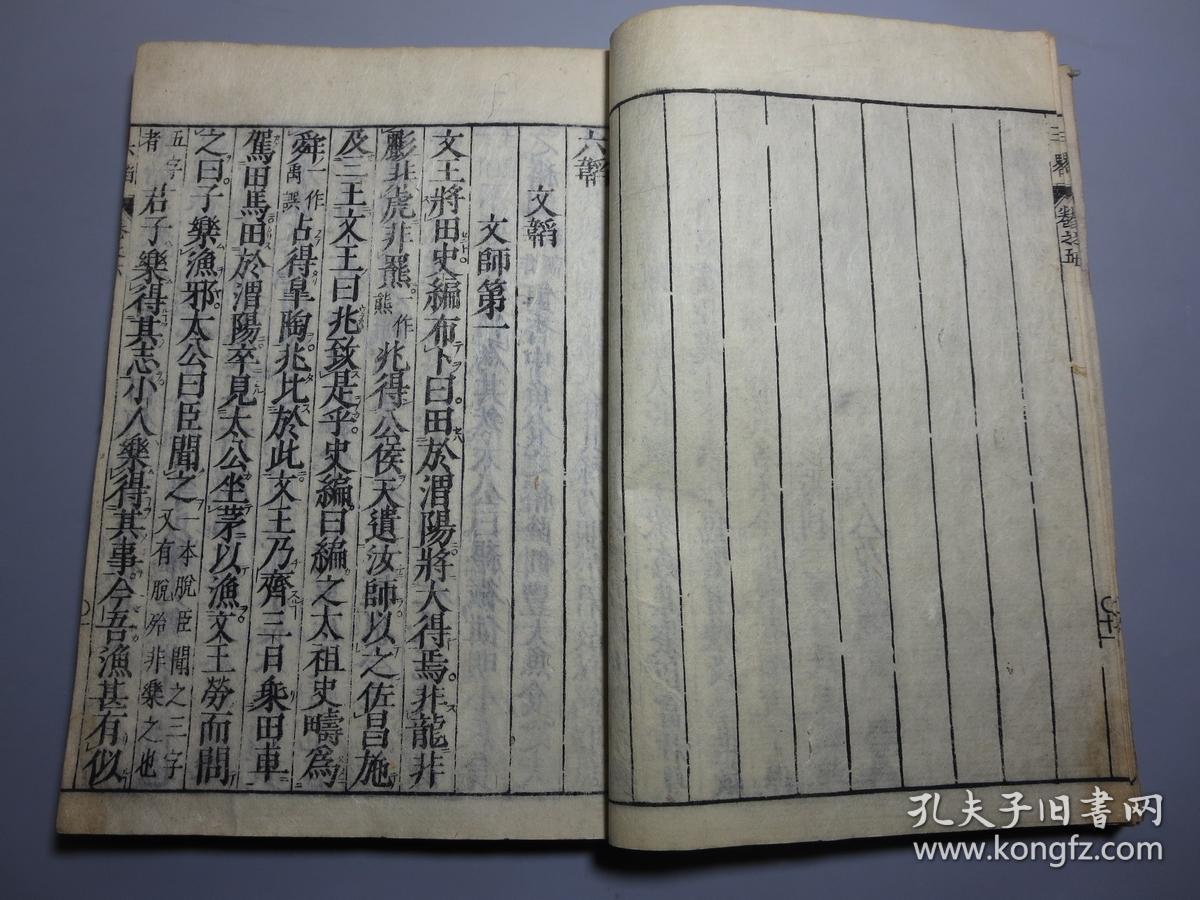 三略 卷之五
六韜
文韜
文師第一
文王將田史編布卜曰田於渭陽將大得焉非龍非
彲非虎非羆一作熊兆得公侯天遺汝師以之佐昌施
及三王文王曰兆致是乎史編曰編之太祖史疇為
舜一作禹誤占得皐陶兆比於此文王乃齊三日乘田車
駕田馬田於渭陽卒見太公坐茅以漁文王勞而問
之曰子樂漁邪太公曰臣聞之一本脫臣聞之三字又有脫殆非樂之也
五字者君子樂得其志小人樂得其事今吾漁甚有似
孔夫子旧书网
www.kongfz.com